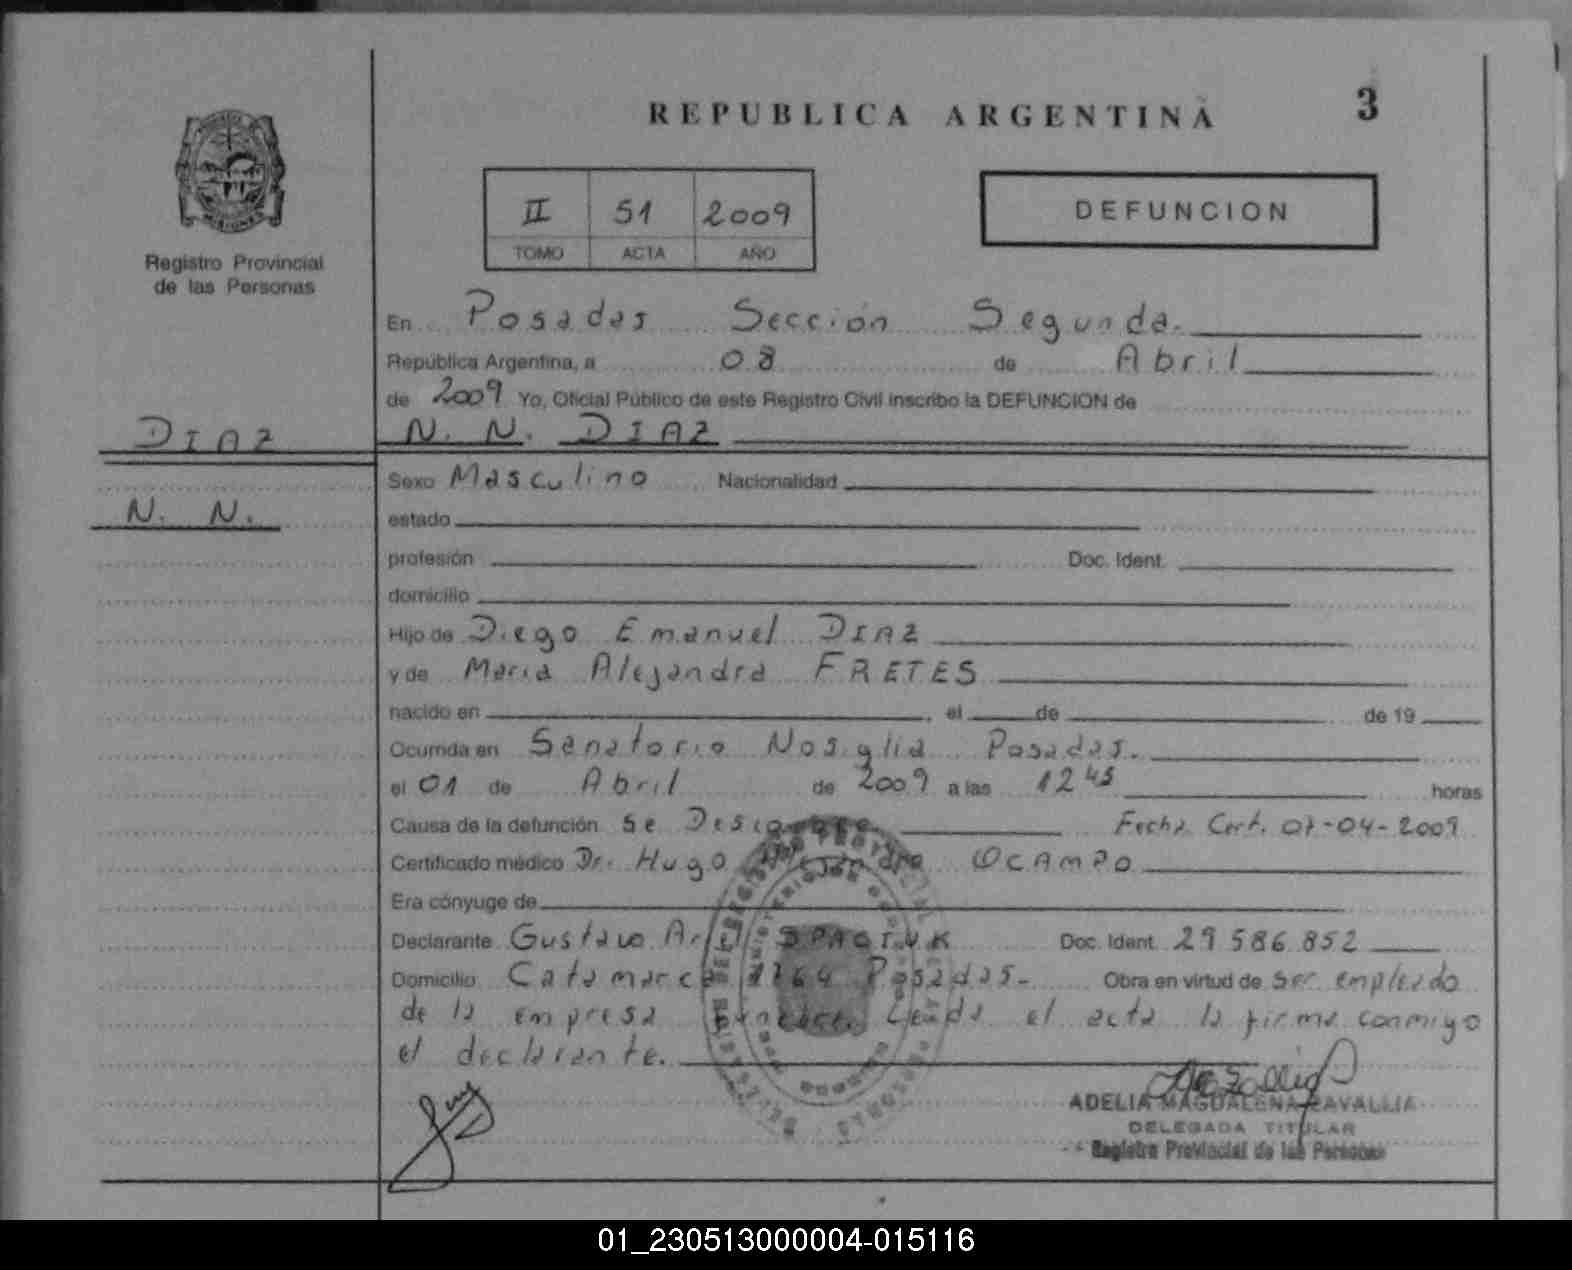 REPUBLICA ARGENTINA
3
II 51 2009
TOMO ACTA AÑO
DEFUNCION
Registro Provincial
de las Personas
En Posadas Sección Segunda.
República Argentina, a 08 de Abril
de 2009 Yo, Oficial Público de este Registro Civil inscribo la DEFUNCION de
DIAZ
N. N. DIAZ
N. N.
Sexo Masculino Nacionalidad
estado
profesión Doc. Ident.
domicilio
Hijo de Diego Emanuel DIAZ
y de Maria Alejandra FRETES
nacido en , el de de 19
Ocurrida en Sanatorio Nosiglia Posadas.
el 01 de Abril de 2009 a las 12 45 horas
Causa de la defunción Se Fecha Cert. 07-04-2009
Certificado médico Dr. Hugo OCAMPO
Era cónyuge de
Declarante Gustavo Ariel Doc. Ident. 29 586 852
Domicilio Catamarca Posadas.- Obra en virtud de Ser empleado
de la empresa Leida el acta la firma conmigo
el declarante.
ADELIA MAGDALENA ZAVALLIA
DELEGADA TITULAR
Registro Provincial de las Personas
01_230513000004-015116